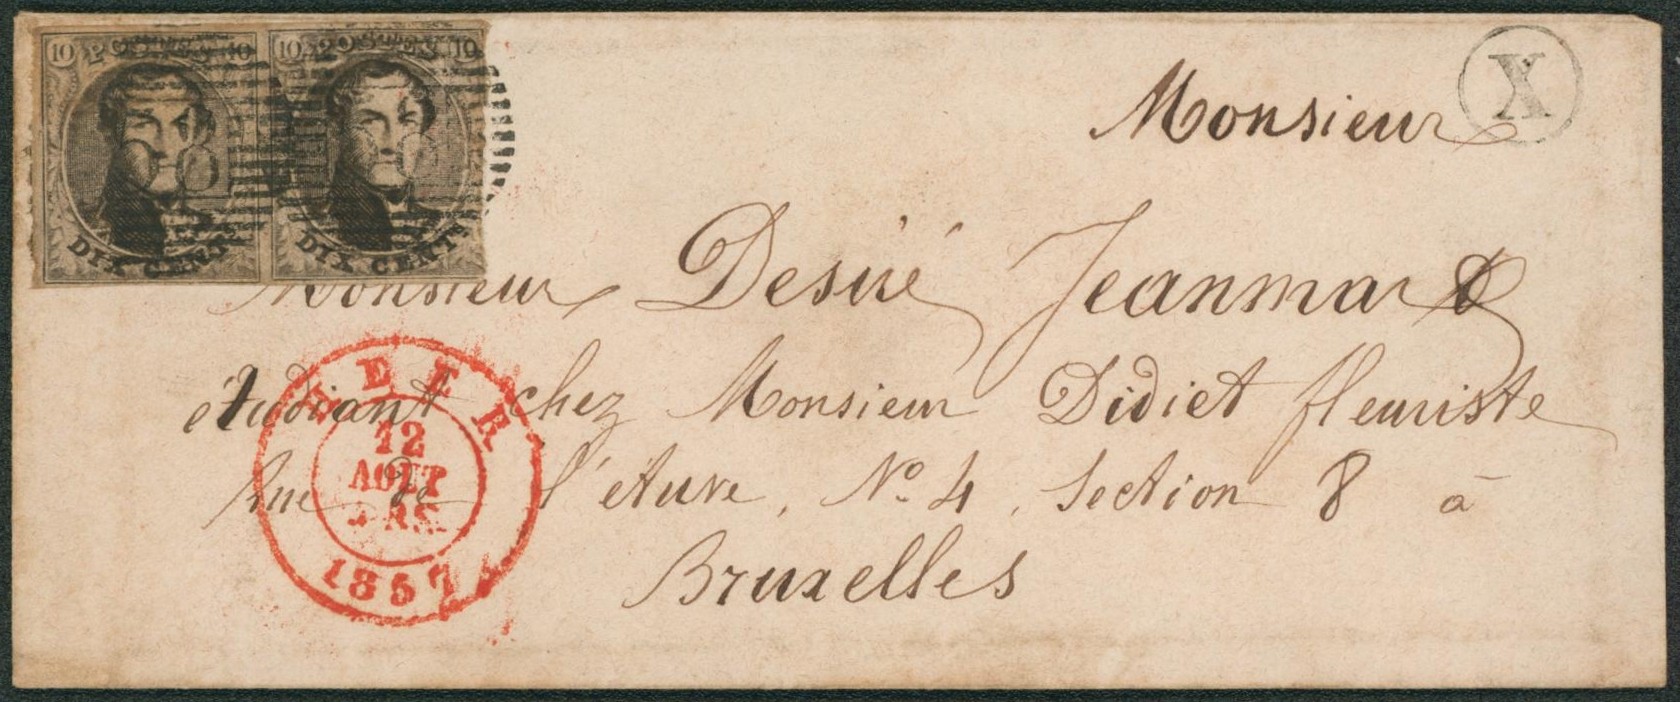 10 POSTES 10
10 POSTES 10
DIX CENTS
DIX CENTS
X
Monsieur
Monsieur Desiré Jeanmart
étudiant chez Monsieur Didiet fleuriste
Rue de l'étuve, N° 4, Section 8 à
Bruxelles
12
AOUT
1857